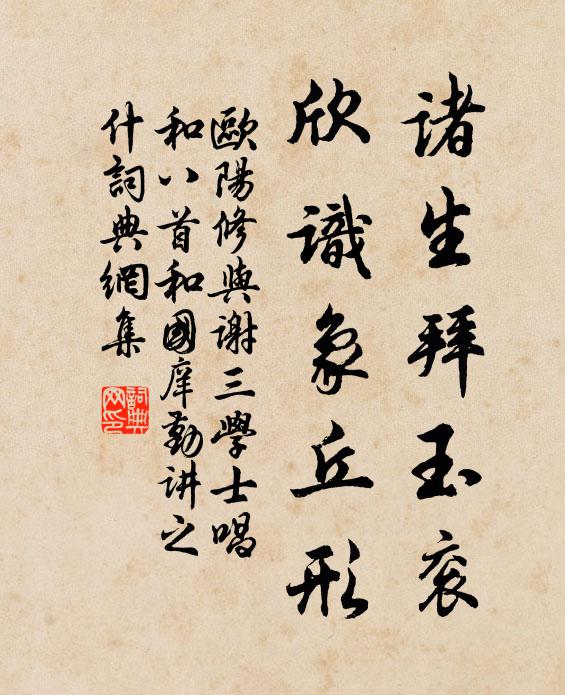 諸生拜玉衮
欣識象丘形
歐陽修與謝三學士唱
和八首和國庠勤讲之
什詞典網集
詞典
网印